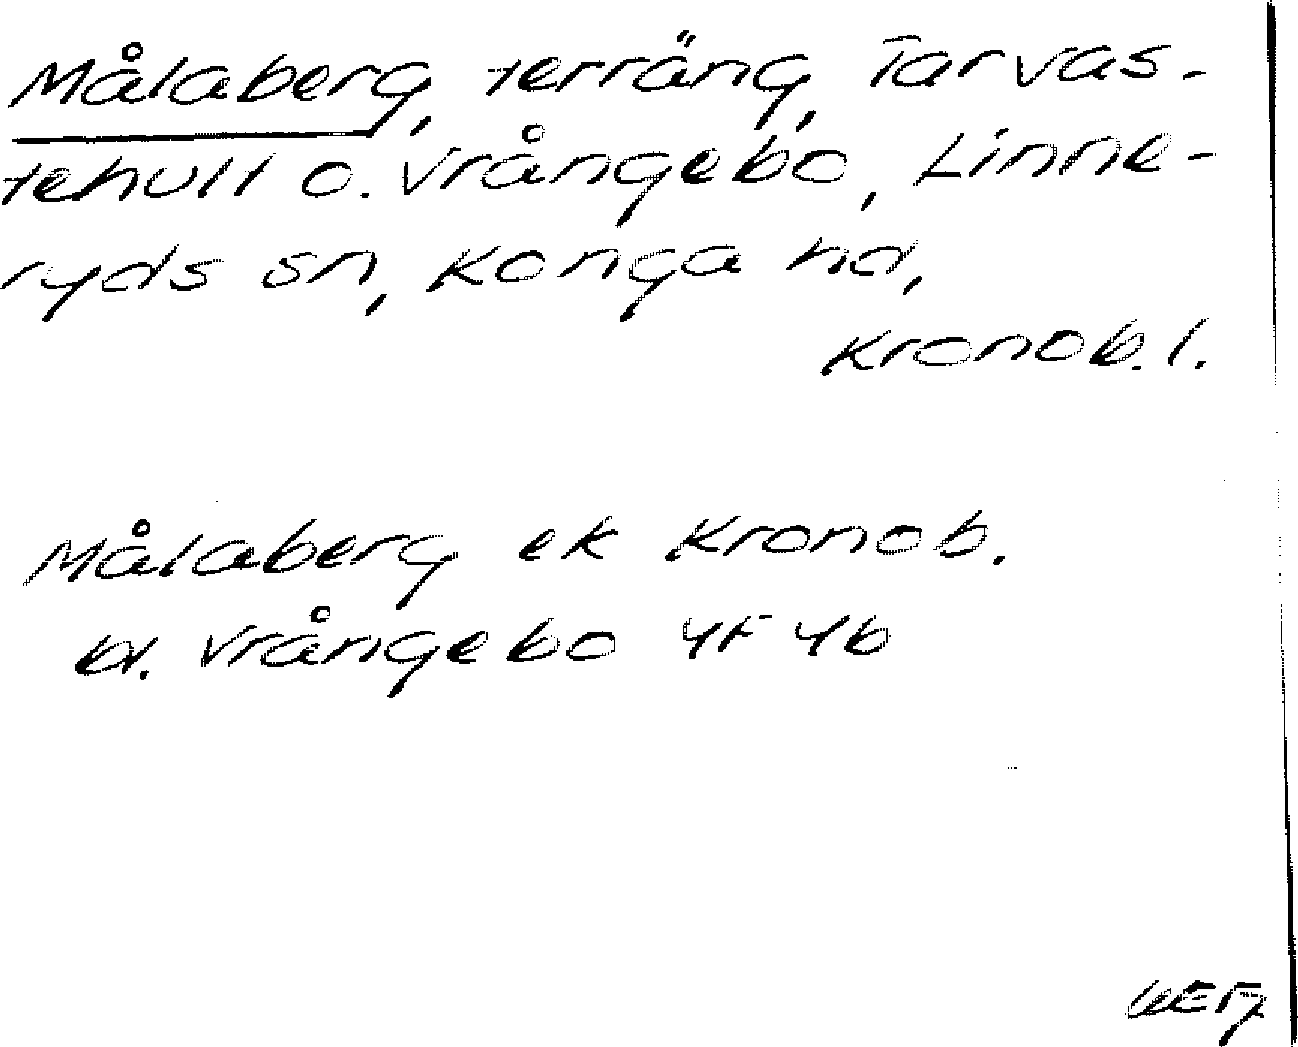 Målaberg, terräng, Tarvas-
tehult o. Vrångebo, Linne-
ryds sn, Konga hd,
Kronob. l.
Målaberg ek Kronob.
bl. Vrångebo 4F 4b